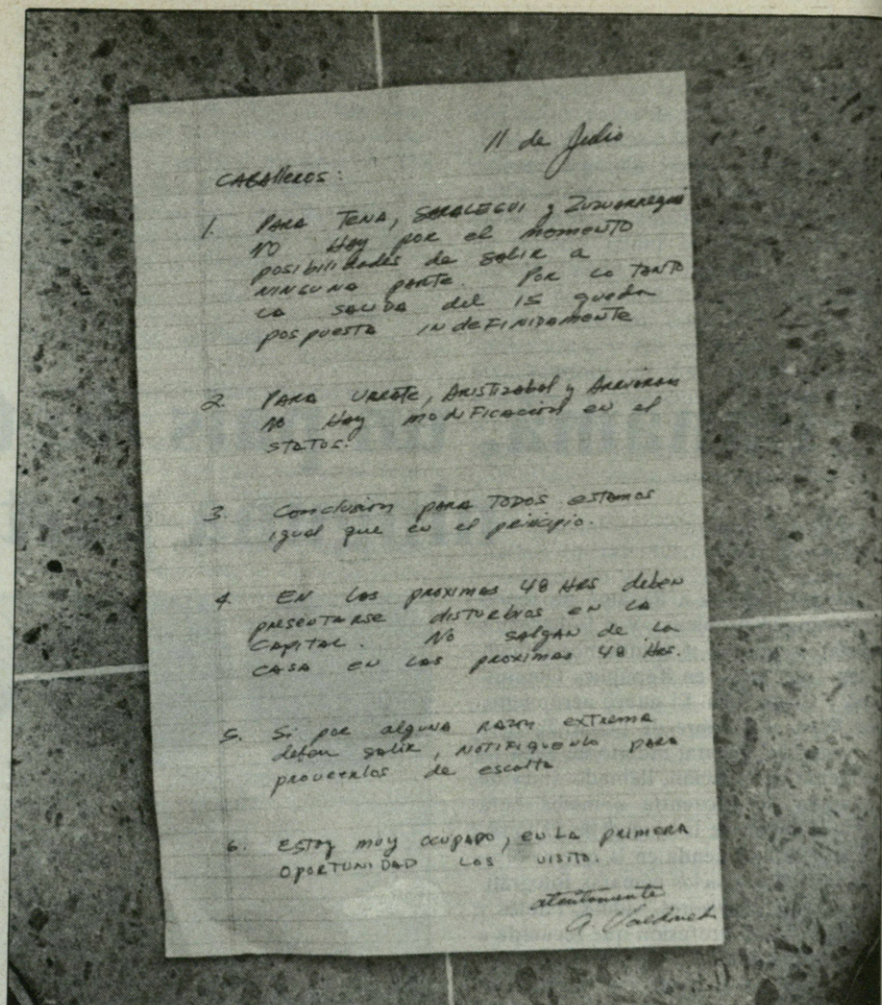 11 de Julio
CABAlleros:
1. PARA TENA, SARALEGUI y Zuzuarregui
NO Hay por el momento
posibilidades de salir a
NINGUNA PARTE. Por lo TANTO
LA SALIDA del 15 queda
pospuesta INdeFINIDAMENTE
2. PARA URRATE, Aristizabal y
NO Hay modificacion en el
STATUS.
3. Conclusion PARA TODOS estamos
igual que en el principio.
4. EN Las proximas 48 HRS deben
presentarse disturbios en LA
CAPITAL. No salgan de la
CASA en Las proximas 48 Hrs.
5. Si por alguna razon extrema
deben salir, NOTIFIQUENLO PARA
proveerlos de escolta
6. Estoy muy ocupado, en LA primera
OPORTUNIDAD Los visito.
atentamente